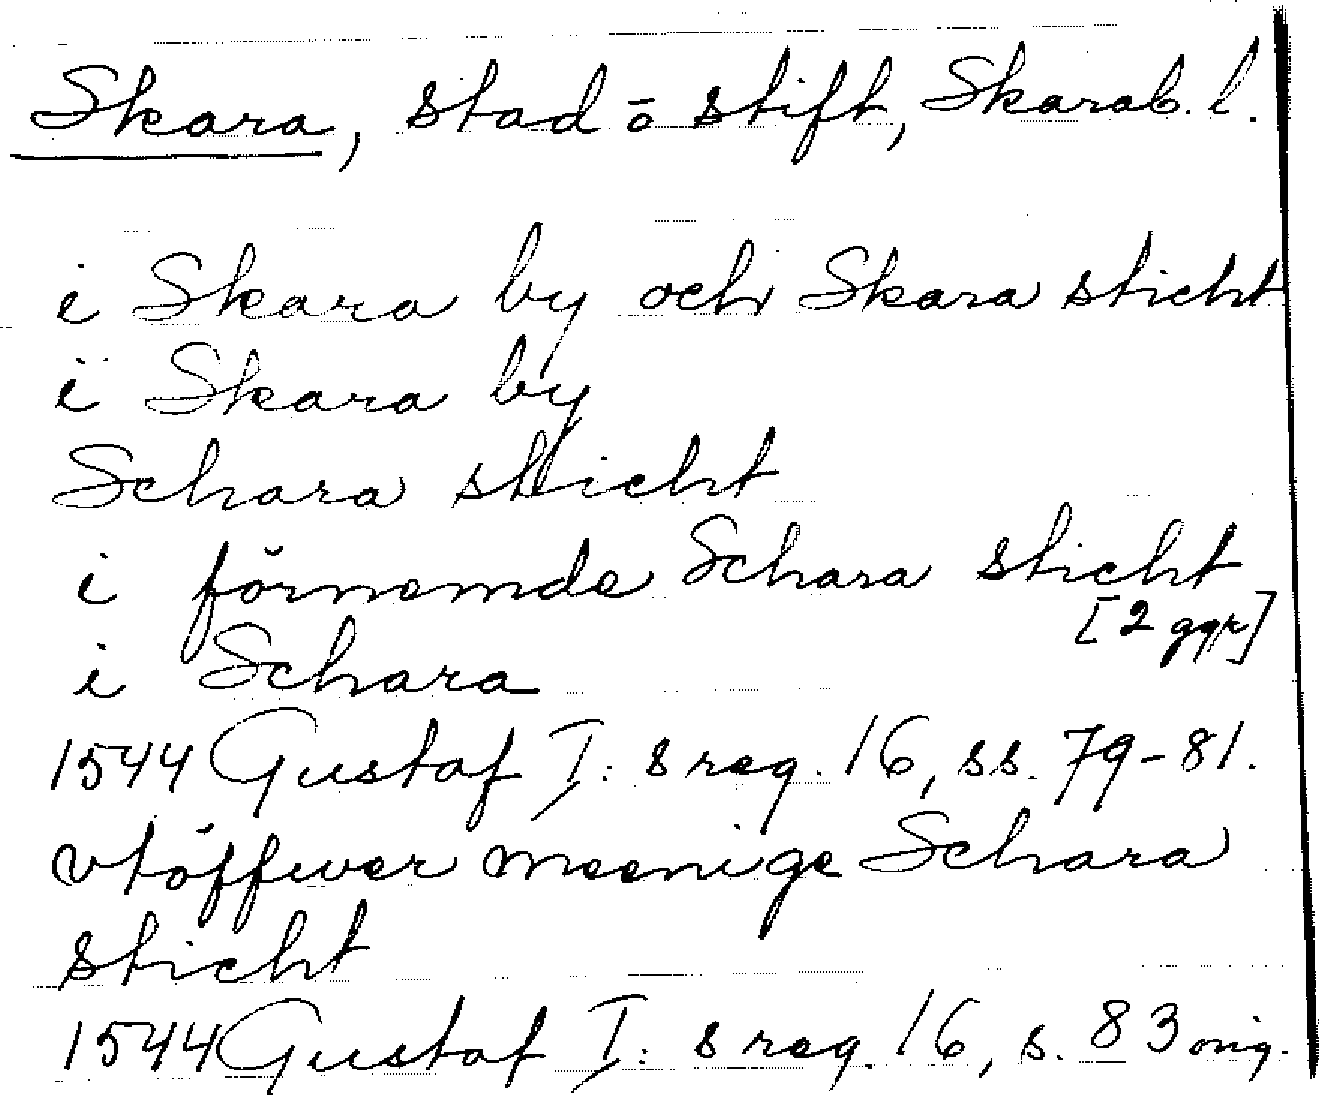 Skara, stad o stift, Skarab. l.
i Skara by och Skara sticht
ï Skara by
Schara sticht
i förnemde Schara sticht
[2 ggr]
i Schara
1544 Gustaf I: s reg. 16, ss. 79-81.
vtöffwer meenige Schara
sticht
1544 Gustaf I: s reg. 16, s. 83 orig.